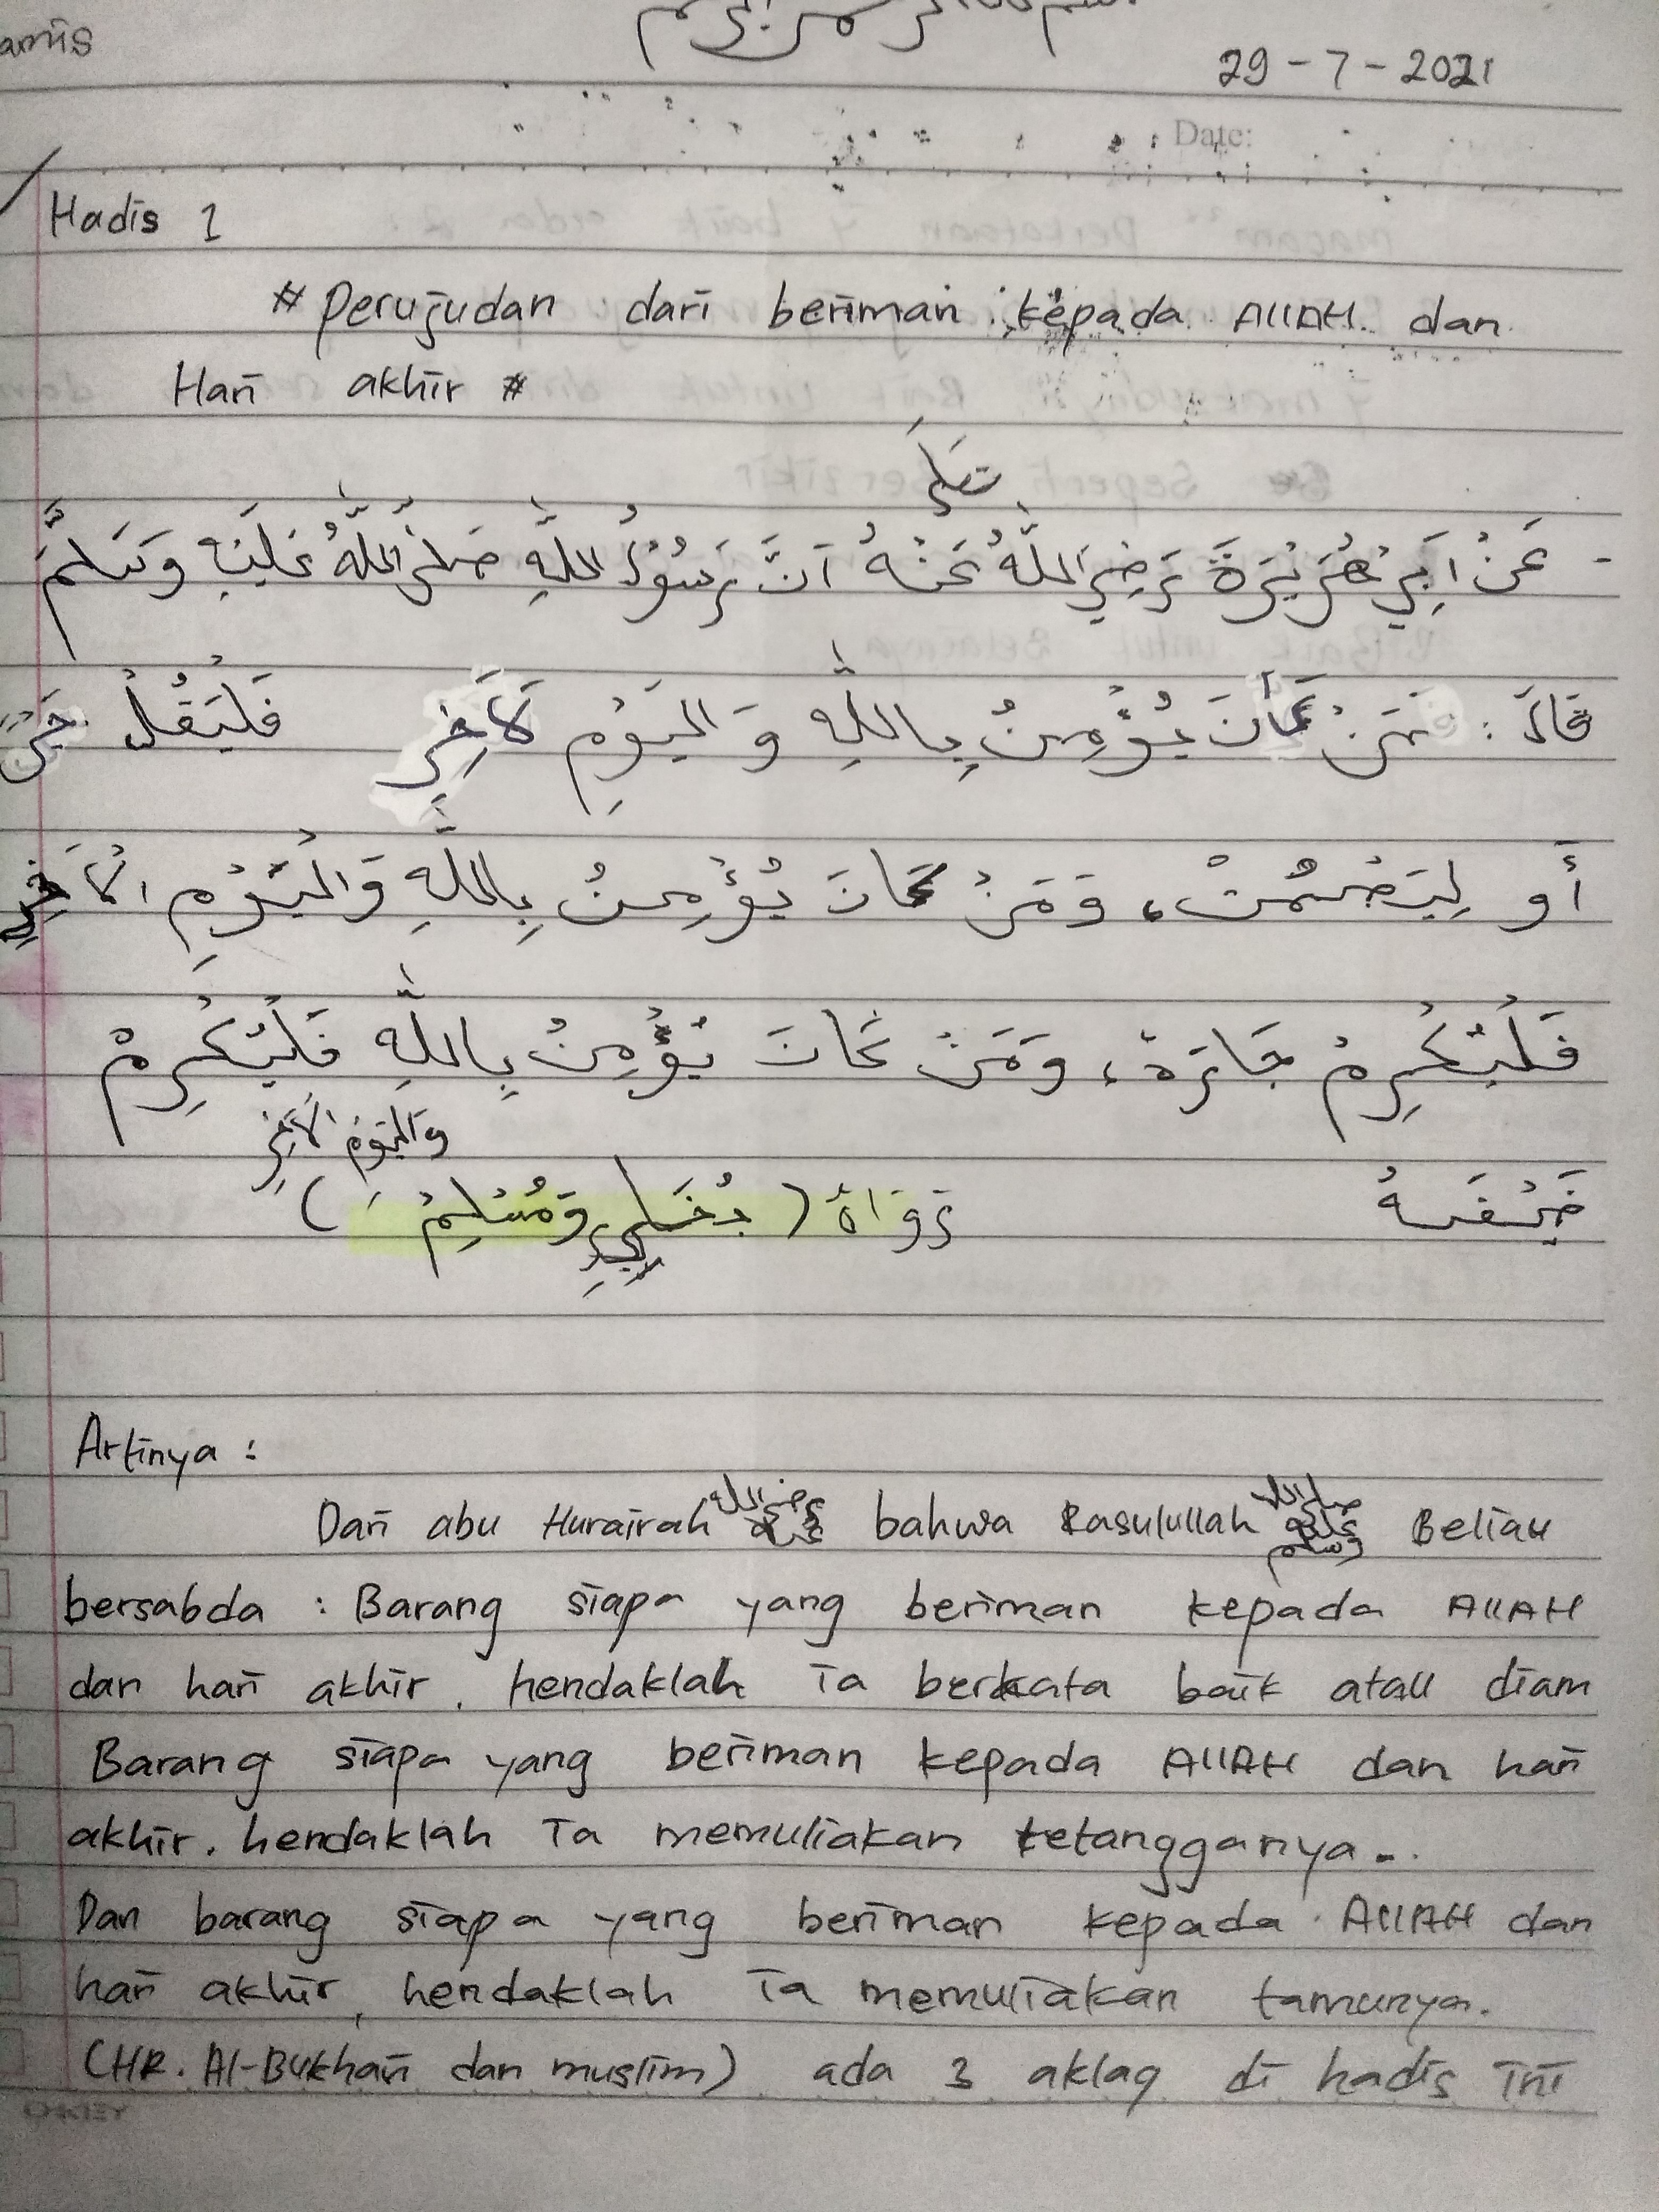 amis
29 - 7 - 2021
Date:
Hadis 1
# Perujudan dari beriman kepada AllAH dan
Hari akhir #
عَنْ اَبِيْ هُرَيْرَةَ رَضِيَ اللّٰهُ عَنْهُ اَنَّ رَسُوْلُ اللّٰهِ صَلَّى اللّٰهُ عَلَيْهِ وَسَلَّمَ
قَالَ : فَمَنْ كَانَ يُؤْمِنُ بِاللّٰهِ وَ الْيَوْمِ لَاَخِرِ فَلْيَقُلْ
أَو لِيَصْمُتْ، وَمَنْ كَانَ يُؤْمِنُ بِاللّٰهِ وَالْيَوْمِ الْاَخِرِ
فَلْيُكْرِمْ جَارَهُ، وَمَنْ كَانَ يُؤْمِنُ بِاللّٰهِ فَلْيُكْرِمْ
وَالْيَوْمِ الْاَخِرِ
ضَيْفَهُ رَوَاهُ ( وَمُسْلِمْ )
Artinya :
Dari abu Hurairah رضي الله عنه bahwa Rasulullah صلى الله عليه وسلم Beliau
bersabda : Barang siapa yang beriman kepada AllAH
dan hari akhir, hendaklah Ia berkata baik atau diam
Barang siapa yang beriman kepada AllAH dan hari
akhir. hendaklah Ia memuliakan tetangganya -.
Dan barang siapa yang beriman kepada AllAH dan
hari akhir, hendaklah Ia memuliakan tamunya.
(HR. Al-Bukhari dan muslim) ada 3 aklaq di hadis ini
OKEY